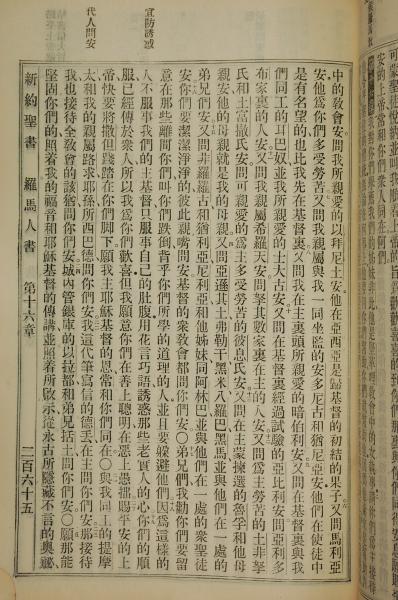 宜防誘惑
代人問安
中的教會安問我所親愛的以拜尼土安他在亞西亞是歸基督的初結的果子又問馬利亞
安他爲你們多受勞苦又問我親屬與我一同坐監的安多尼古和猶尼亞安他們在使徒中
是有名望的也比我先在基督裏又問我在主裏頭所親愛的暗伯利安又問在基督裏與我
們同工的耳巴奴並我所親愛的士大古安又問在基督裏經過試驗的亞比利安問亞利多
布家裏的人安又問我親屬希羅天安問拏其數家裏在主的人安又問爲主勞苦的土非拏
氏和土富撒氏安問可親愛的爲主多受勞苦的彼息氏安又問在主蒙揀選的魯孚和他母
親安他的母親就是我的母親又問亞遜其土弗勒干黑米八羅巴黑馬並與他們在一處的
弟兄們安又問非羅羅古和猶利亞尼利亞和他姊妹同阿林巴並與他們在一處的衆聖徒
安你們要潔潔淨淨的彼此親嘴問安基督的衆教會都問你們安○弟兄們我勸你們要留
意在那些離間你們叫你們跌倒背乎你們所學的道理的人並且要躱避他們因爲這樣的
人不服事我們的主基督只服事自己的肚腹用花言巧語誘惑那些老實人的心你們的順
服已經傳於衆人所以我爲你們歡喜但我願意你們在善上聰明在惡上愚拙賜平安的上
帝快要將撒但踐踏在你們脚下願我主耶穌基督的恩常和你們同在○與我同工的提摩
太和我的親屬路求耶孫所西巴德問你們安我這代筆寫信的德丟在主問你們安那接待
我也接待全教會的該猶問你們安城內管銀庫的以拉都和弟兄括土問你們安○願那能
堅固你們的照着我的福音和耶穌基督的傳講並照着所啟示從永古所隱藏不言的奧秘
新約聖書 羅馬人書 第十六章 二百六十五